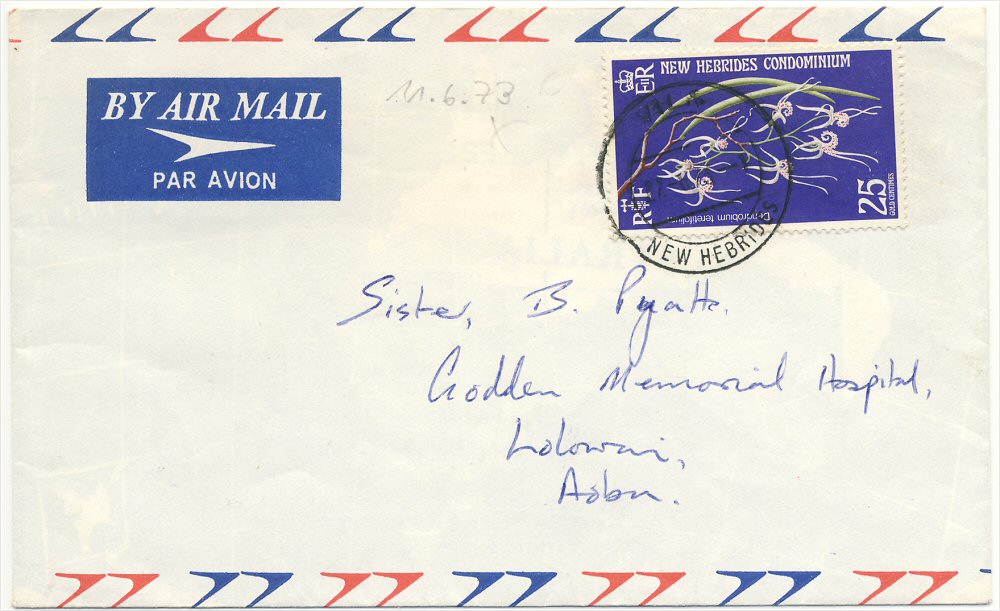 BY AIR MAIL
PAR AVION
11.6.73
x
EIIR
NEW HEBRIDES CONDOMINIUM
RF
Dendrobium teretifolium
25
GOLD CENTIMES
VILA
NEW HEBRIDES
Sister, B. Pyatt.
Godden Memorial Hospital,
Lolowai,
Aoba.